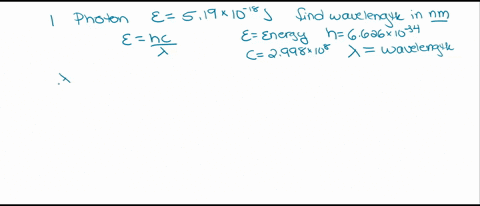 1 Photon E = 5.19 × 10⁻¹⁸ J find wavelength in nm
E = hc/λ E = Energy h = 6.626×10⁻³⁴
C = 2.998×10⁸ λ = wavelength
λ